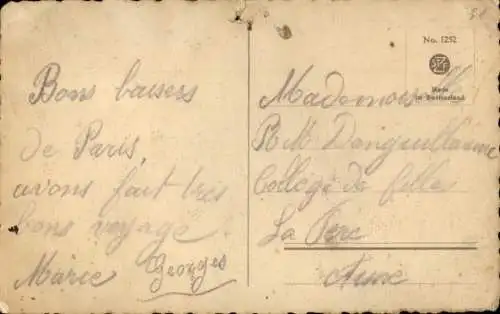 Bons baisers
de Paris,
avons fait très
bons voyage
Marie Georges
No. 1252
Made
in Switzerland
Mademois
Danguillaume
Collège de filles
La Fere
Aisne